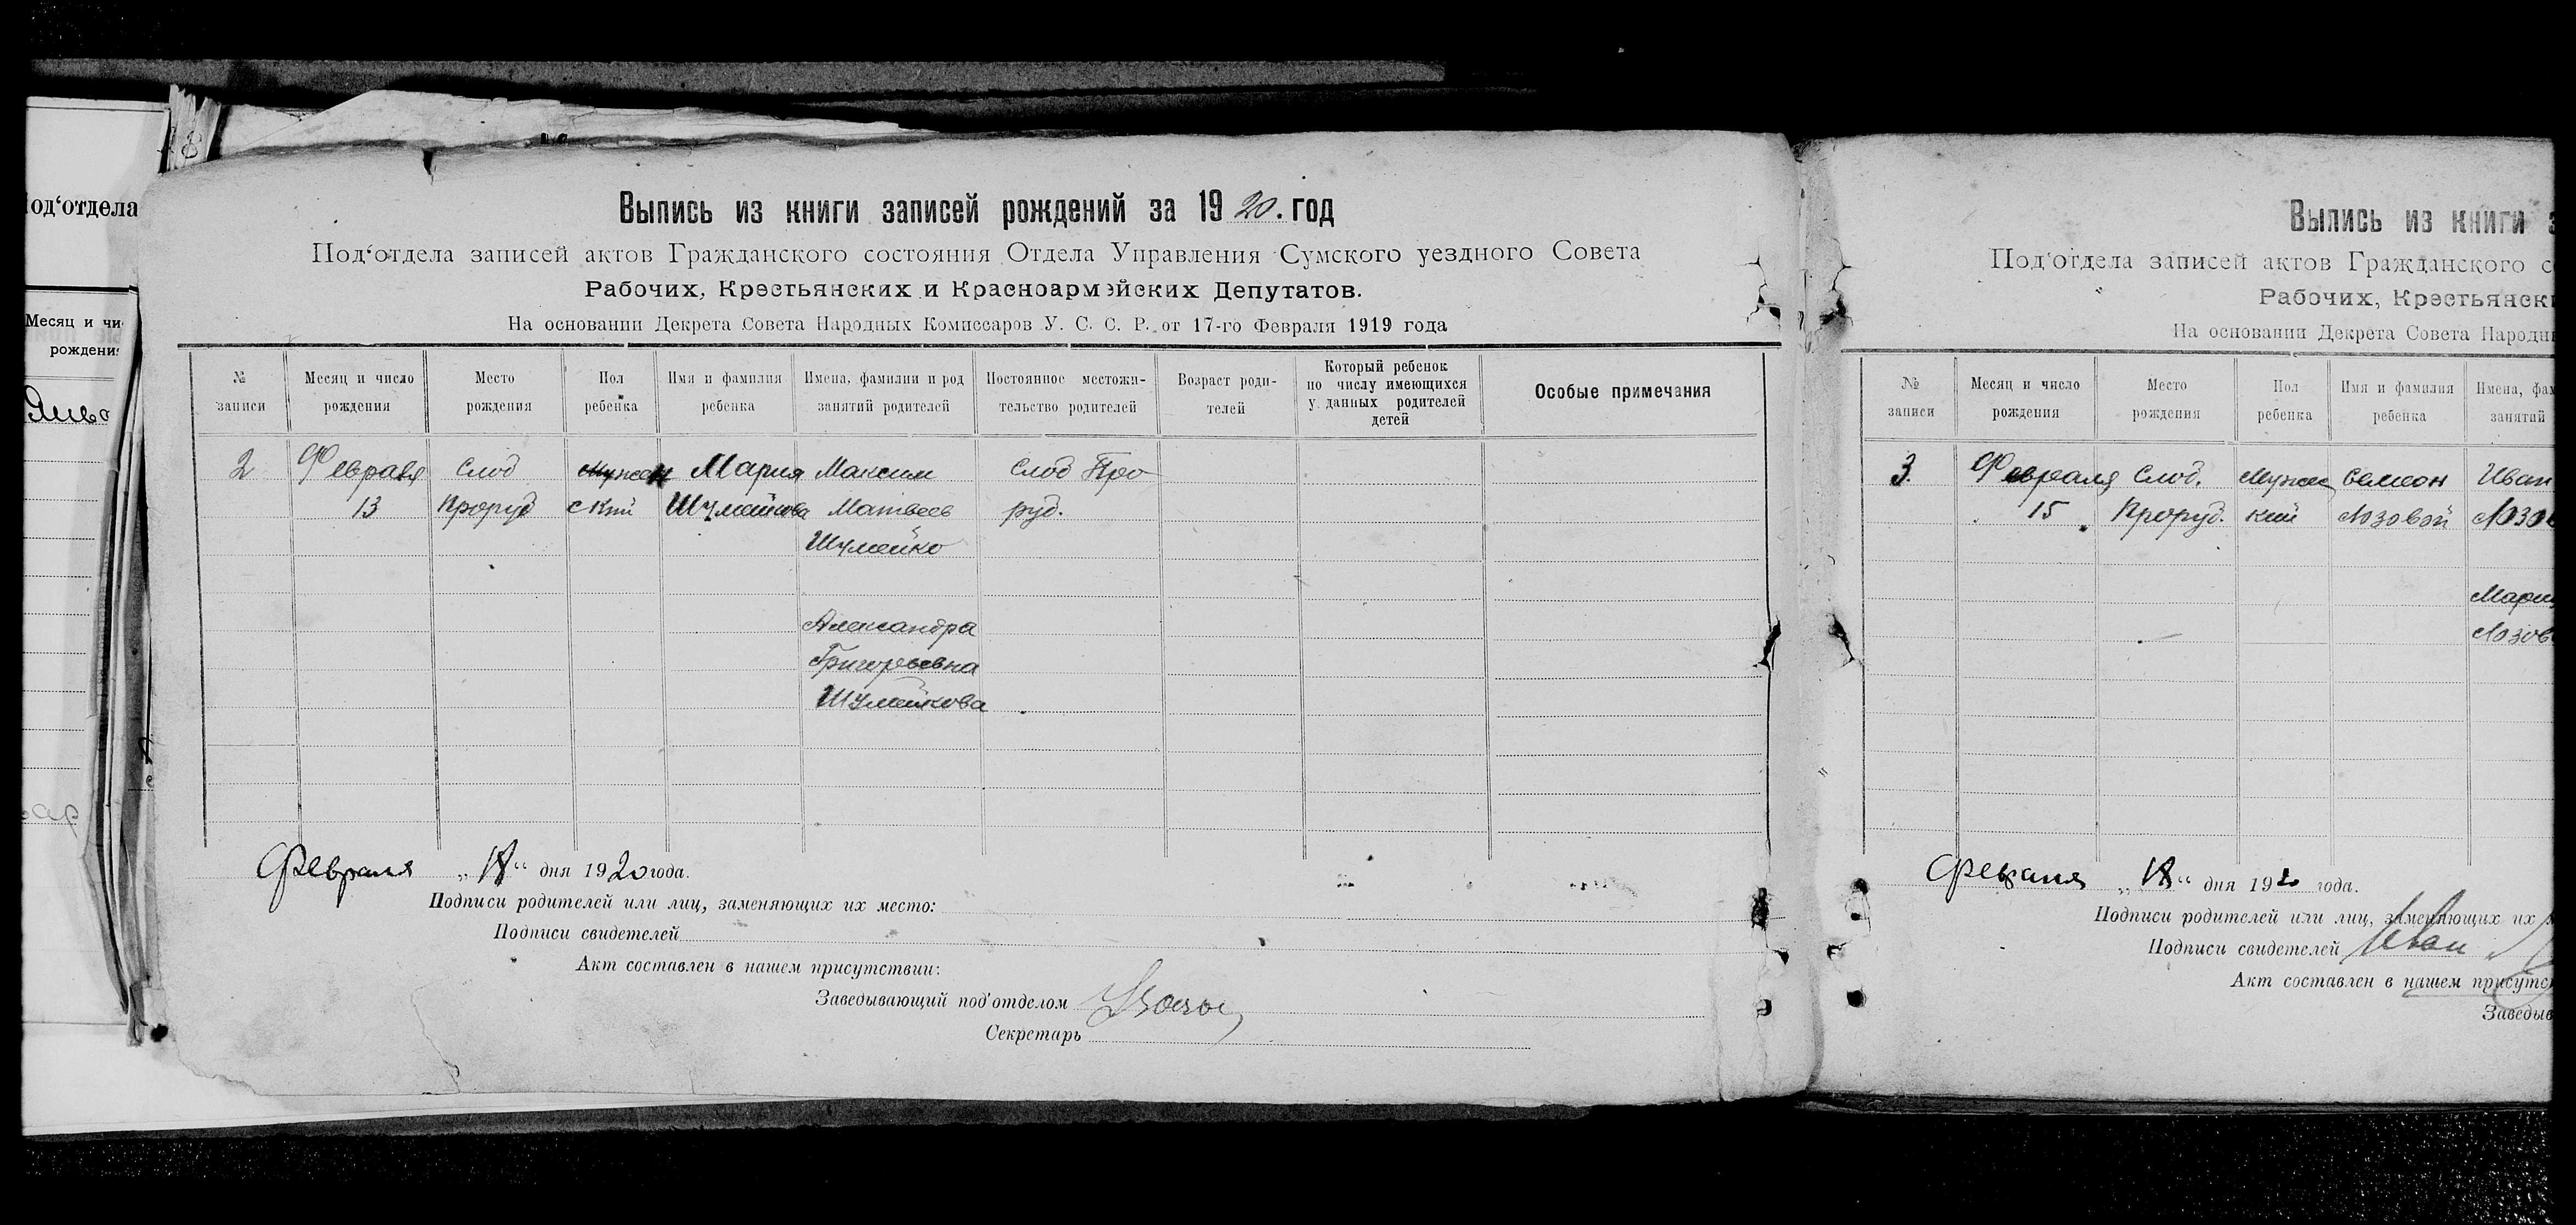 Под‘отдела
Месяц и чи
рождени
Выпись из книги записей рождений за 1920. год
Под‘отдела записей актов Гражданского состояния Отдела Управления Сумского уездного Совета
Рабочих, Крестьянских и Красноармейских Депутатов.
На основании Декрета Совета Народных Комиссаров У. С. С. Р. от 17-го Февраля 1919 года
№ записи
Месяц и число рождения
Место рождения
Пол ребенка
Имя и фамилия ребенка
Имена, фамилии и род занятий родителей
Постоянное местожительство родителей
Возраст родителей
Который ребенок по числу имеющихся у данных родителей детей
Особые примечания
2 Февраля Слод Мария Максим Слод Про
13 Проруд ский Шумейкова Матвеев руд.
Шумейко
Александра
Григорьевна
Шумейкова
Февраля „18“ дня 1920 года.
Подписи родителей или лиц, заменяющих их место:
Подписи свидетелей
Акт составлен в нашем присутствии:
Заведывающий под‘отделом
Секретарь
Выпись из книги з
Под‘отдела записей актов Гражданского с
Рабочих, Крестьянск
На основании Декрета Совета Народн
№ записи
Месяц и число рождения
Место рождения
Пол ребенка
Имя и фамилия ребенка
Имена, фам
занятий
3. Февраля Слод. Мужс Семеон Иван
15 Проруд. кий Лозовой Лозов
Мария
Лозов
Февраля „18“ дня 1920 года.
Подписи родителей или лиц, заменяющих их
Подписи свидетелей Иван
Акт составлен в нашем присутс
Заведыв